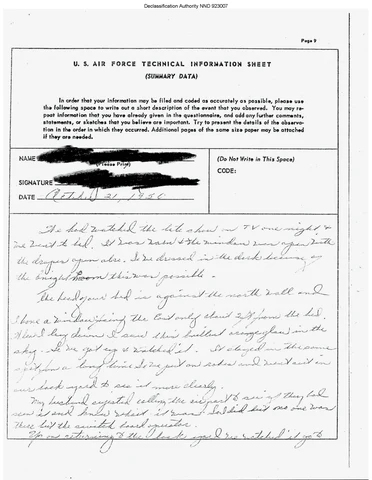 Declassification Authority NND 923007
Page 9
U. S. AIR FORCE TECHNICAL INFORMATION SHEET
(SUMMARY DATA)
In order that your information may be filed and coded as accurately as possible, please use
the following space to write out a short description of the event that you observed. You may re-
peat information that you have already given in the questionnaire, and add any further comments,
statements, or sketches that you believe are important. Try to present the details of the observa-
tion in the order in which they occurred. Additional pages of the same size paper may be attached
if they are needed.
NAME
(Please Print)
(Do Not Write In This Space)
CODE:
SIGNATURE
DATE 21,
We had watched the late show on TV one night &
we went to bed. It was warm & the window was open with
the drapes open also. We dressed in the dark because of
the bright moon this was possible.
The head of our bed is against the north wall and
I have a window facing the East only about 2 ft from the bed.
When I lay down I saw this brilliant orange glow in the
sky. So we got up & watched it. It stayed in the same
spot for a long time so we put on robes and went out in
our back yard to see it more clearly.
My husband suggested calling the airport to see if they had
seen it and knew what it was. I did but no one was
there but the switch board operator.
Upon returning to the back yard we watched it go to